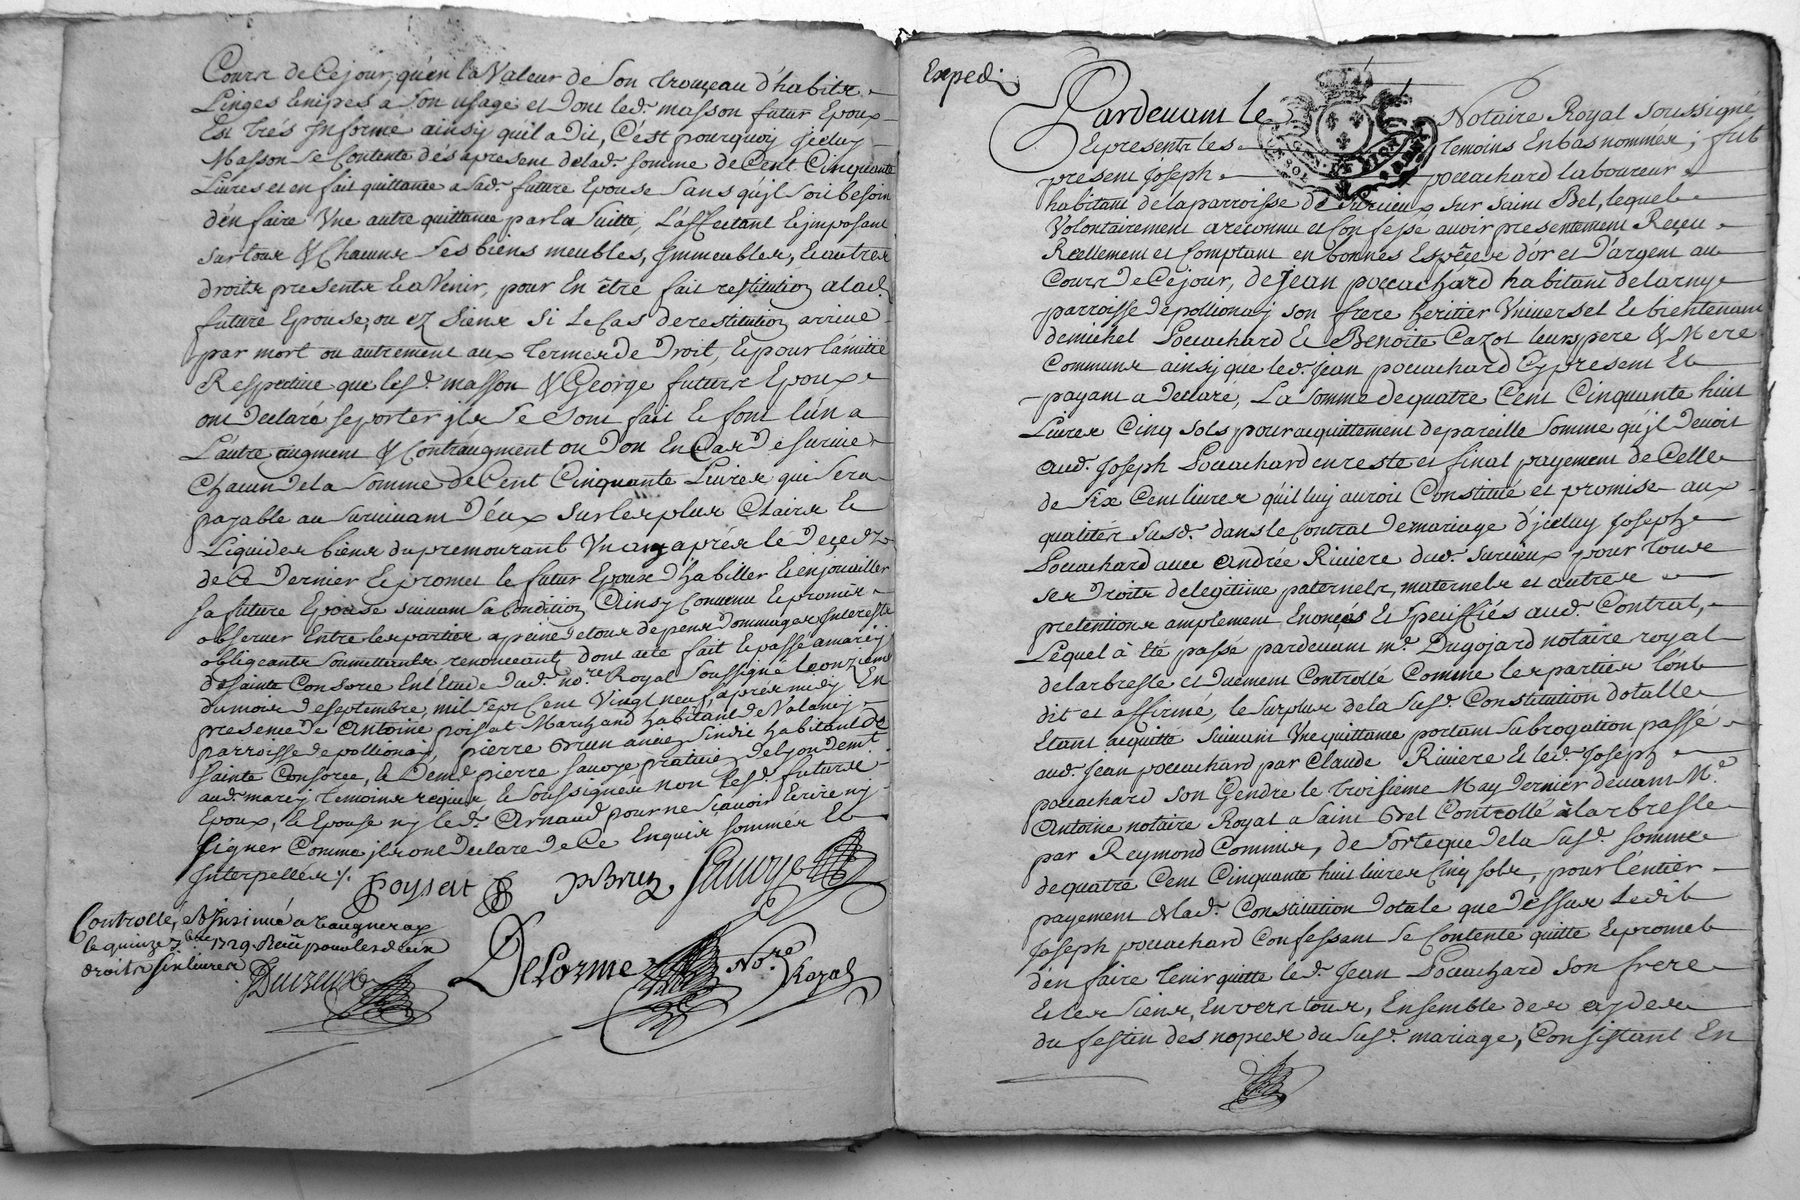 Cours de Ce jour, qu'en la Valeur de Son trouçeau d'habits
Linges Enipes a Son usage et dont led. masson futur Epoux
Est trés Informé ainsy qu'il a dit, C'est pourquoy jceluy
Masson Se Contente dés apresent delad. Somme de Cent Cinquante
Livres et en fait quittance a Sad. future Epouse Sans qu'jl Soit besoin
d'en faire Vne autre quittance par la Suitte, L'affectant & jmposant
Sur tous & Chacuns Ses biens meubles, Jmmeubles, & autres
droits presents & a Venir, pour En être fait restitution a lad.
future Epouse, ou ez Siens Si Le Cas de restitution arrive
par mort ou autrement aux termes de Droit, & pour l'amitié
Respective que lesd. masson & George futurs Epoux
ont Declaré se porter jls Se Sont fait & font l'ún a
L'autre augment & Contraugment ou Don En Cas de Survie
Chacun de la Somme de Cent Cinquante Livres qui Sera
payable au Survivant D'éux Sur les plus Clairs &
Liquides biens du premourant Vn an aprés le Deçedz
de Ce Dernier & promet le futur Epoux d'habiller & enjouailler
Sa future Epouse Suivant Sa Condition Ainsy Convenu & promis
observer Entre les parties a peine de tous depens Dommages Interests
obligeants Soumettants renonceants, dont acte fait & passé a marcy
de Sainte Consorce En L'Etude dud. no.re Royal Soussigné Le onzieme
du mois de Septembre, mil Sept Cent Vingt neuf, aprés midy En
presence de Antoine poisat Marchand habitant de Valancy
parroisse de pollionay, pierre Brun ancien Sindic habitant de
Sainte Consorce, & Dem.d pierre Savoye praticien de Lyon dem.t
aud. marcy temoins requis & Soussignes non lesd. futurs
Epoux, & Epouse ny led. Arnaud pour ne Sçavoir Ecrire ny
Signer Comme jls ont Declaré de Ce Enquis Sommés &
Interpellés ./.
Poysat PBrun Savoye
Controllé, & Insinué a Vaugneray
le quinze 7bre 1729. Recu pour les deux
droits six livres
Delorme No.re Royal
Exped.
Pardevant le Notaire Royal Soussigné
& presents les temoins En bas nommés; fut
present Joseph pouachard laboureur
habitant de la parroisse de Surcieux Sur Saint Bel, lequel
Volontairement a reconnu et Confessé avoir presentement Reçeu
Reellement et Comptant en bonnes Espêces d'or et D'argent au
Cours de Ce jour, de Jean pouachard habitant de larny
parroisse de pollionay Son frere heritier Vniversel & bientenant
de michel Pouachard & Benoite Cazot leurs pere & Mere
Communs ainsy que led. Jean pouachard Cy present &
payant a Declaré, La Somme de quatre Cent Cinquante huit
Livres Cinq Sols pour acquittement de pareille Somme qu'jl Devoit
aud. Joseph Pouachard en reste et final payement de Celle
de Six Cent livres qu'il luy auroit Constitué et promise aux
qualites Susd. dans le Contrat de mariage d'jceluy Joseph
Pouachard avec Andrée Riviere dud. Surcieux pour tous
Ses Droits de legitime paternels, maternels et autres
pretentions amplement Enonçés & Speciffiés aud. Contrat,
Lequel à êté passé pardevant m.e Dugojard notaire royal
de larbresle et duement Controllé Comme les parties L'ont
dit et affirmé, le Surplus de la Susd. Constitution dotalle
Etant acquitté Suivant Vne quittance portant Subrogation passé
aud. Jean pouachard par Claude Riviere & led. Joseph
pouachard Son Gendre le troisieme May Dernier devant M.e
Antoine notaire Royal a Saint Bel Controllé à Larbresle
par Reymond Commis, de Sorte que de la Susd. Somme
de quatre Cent Cinquante huit livres Cinq Sols, pour l'entier
payement de lad. Constitution Dotale que dessus Ledit
Joseph pouachard Confessant Se Contente quitte & promet
d'en faire tenir quitte led. Jean Pouachard Son frere
& les Siens, Envers tous, Ensemble des aydes
du festin des nopces du Susd. mariage, Consistant En